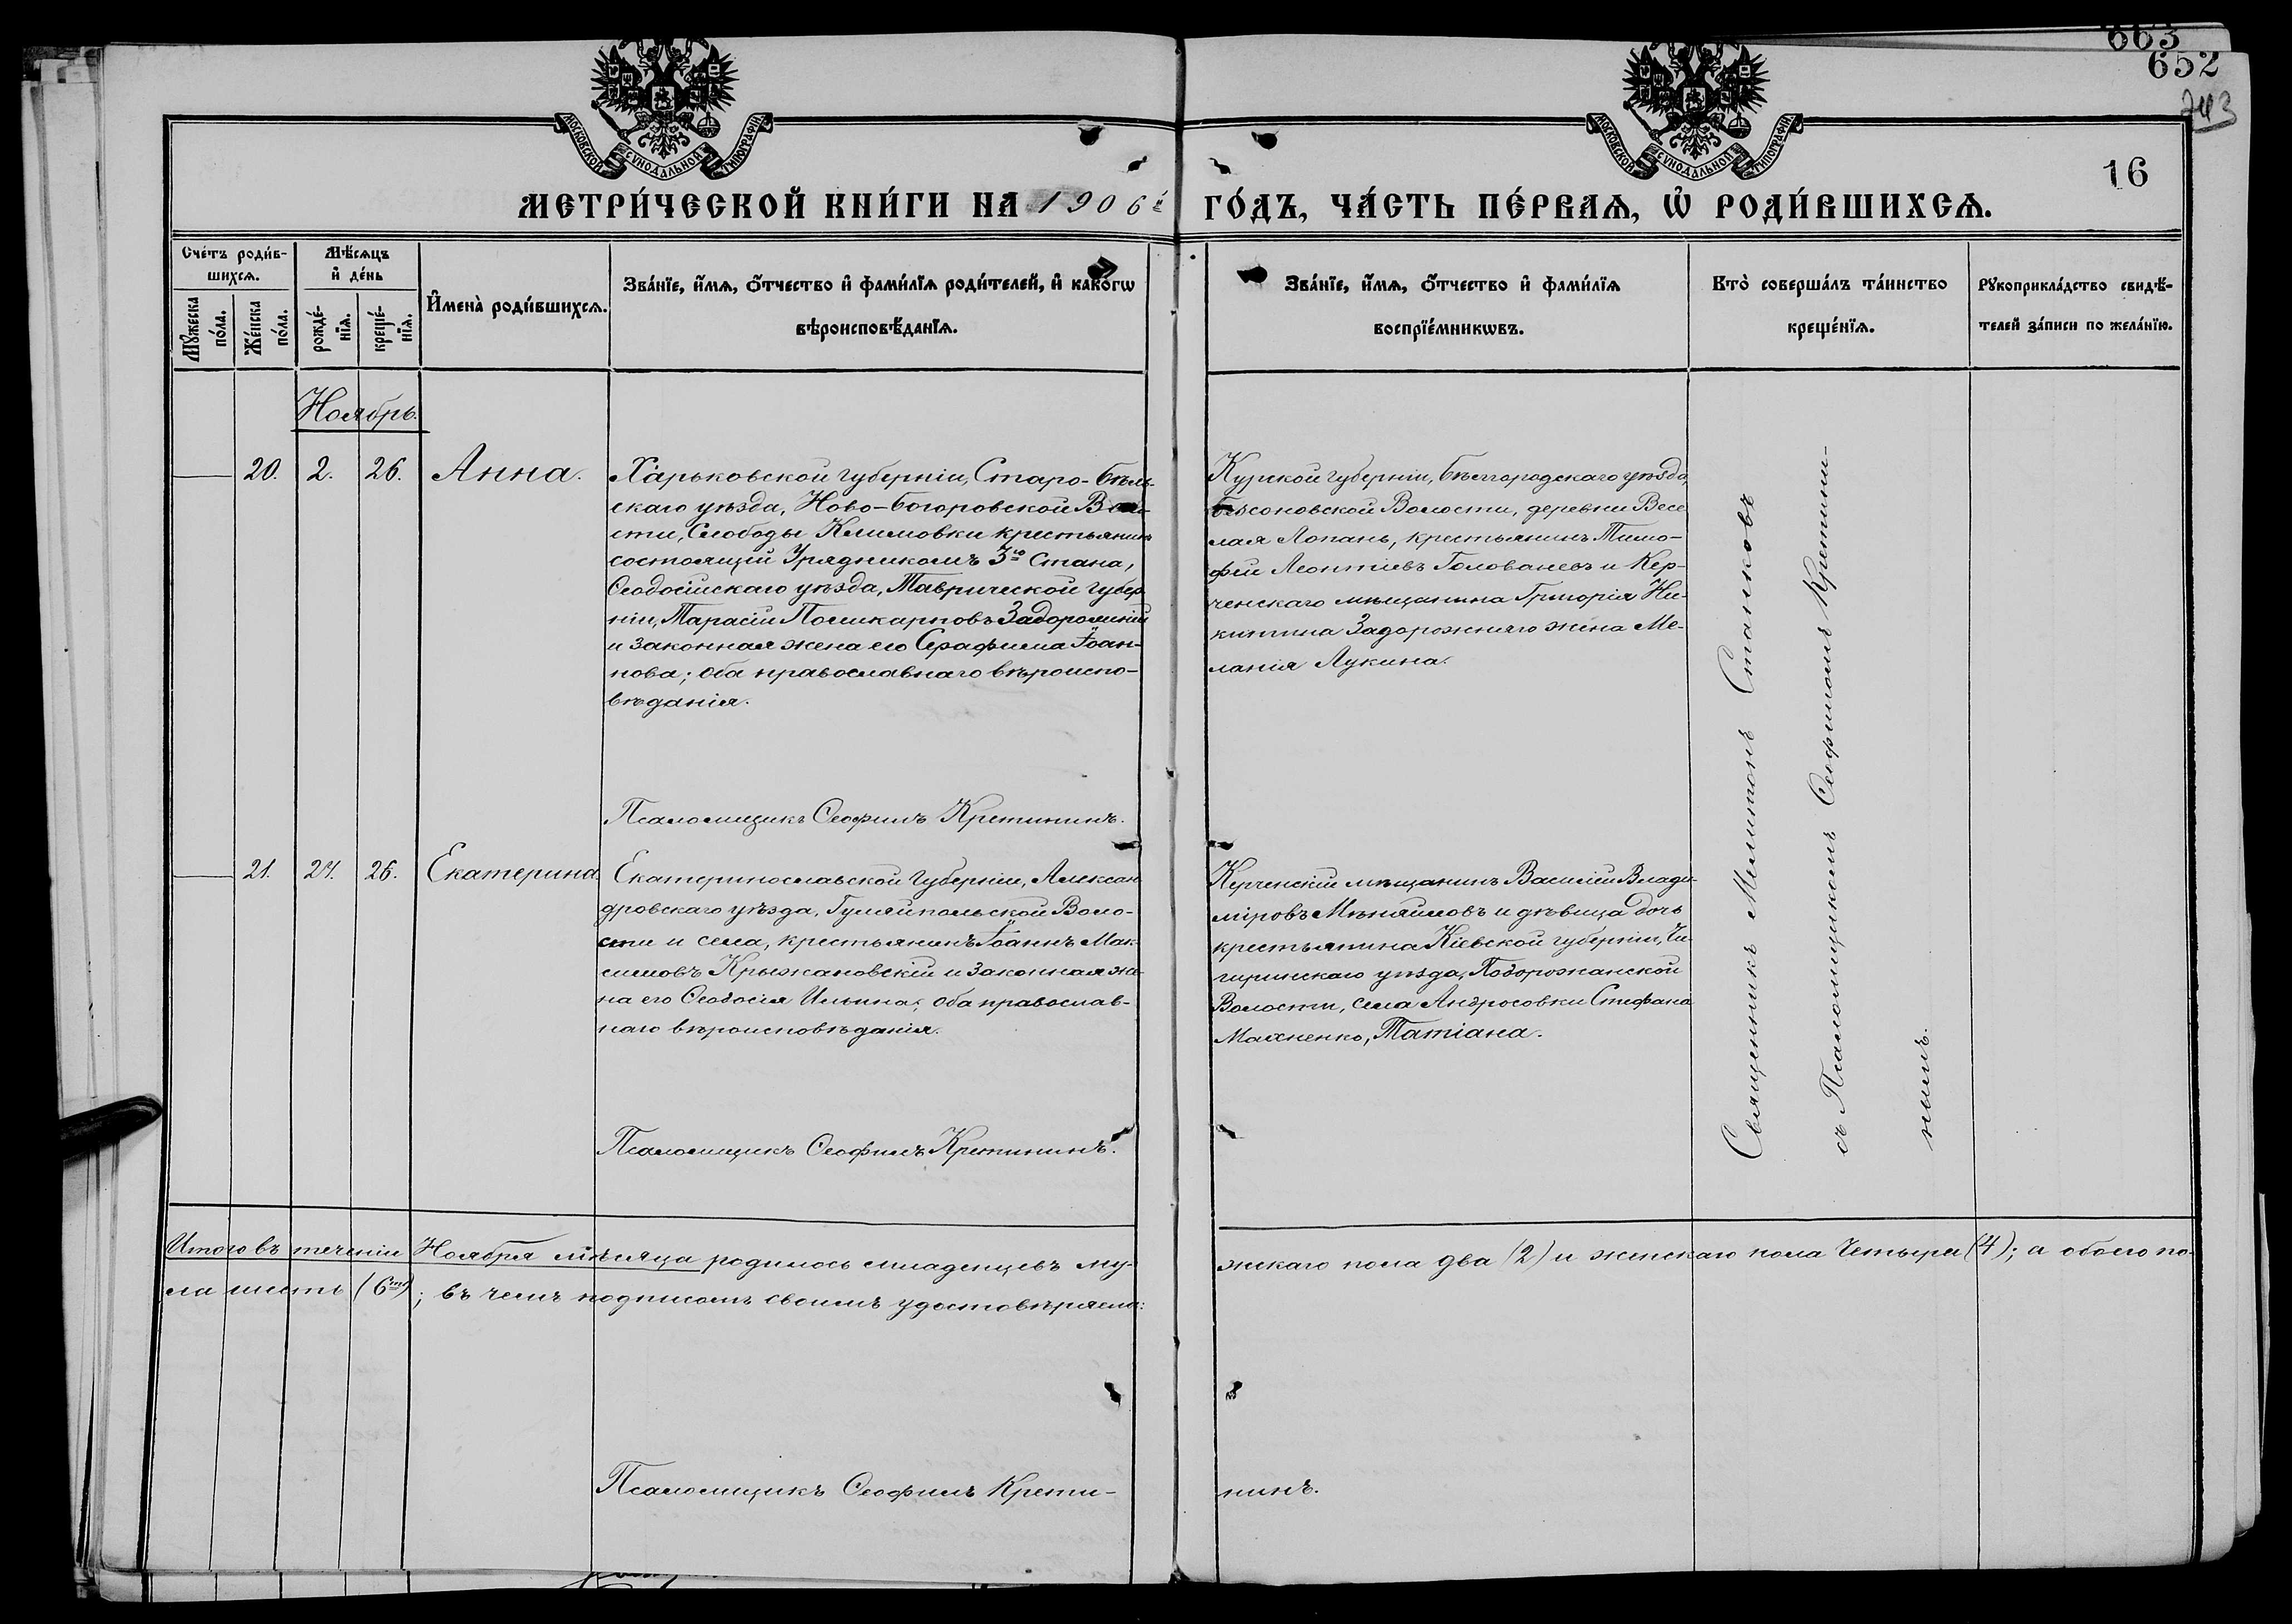 663
652
743
16
МОСКОВСКОЙ СѴНОДАЛЬНОЙ ТИПОГРАФІИ
МОСКОВСКОЙ СѴНОДАЛЬНОЙ ТИПОГРАФІИ
МЕТРИ́ЧЕСКОЙ КНИ́ГИ НА 1906й ГО́ДЪ, ЧА́СТЬ ПЕ́РВАѦ, Ѡ҆ РОДИ́ВШИХСѦ.
Сче́тъ роди́в-
шихсѧ.
Мꙋ́жеска по́ла.
Же́нска по́ла.
Мѣ́сѧцъ
и҆ де́нь
рожде́-
нїѧ.
креще́-
нїѧ.
И҆мена̀ роди́вшихсѧ.
Зва́нїе, и҆́мѧ, ѻ҆́тчество и҆ фами́лїѧ роди́телей, и҆ како́гѡ
вѣроисповѣ́данїѧ.
Зва́нїе, и҆́мѧ, ѻ҆́тчество и҆ фами́лїѧ
воспрїе́мникѡвъ.
Кто̀ соверша́лъ та́инство
креще́нїѧ.
Рꙋкоприкла́дство свидѣ́-
телей за́писи по жела́нїю.
Ноябрь.
20. 2. 26. Анна.
Харьковской губерніи, Старо-бѣль-
скаго уѣзда, Ново-боровской Воло-
сти, Слободы Климовки крестьянинъ
состоящій Урядникомъ 3го Стана,
Ѳеодосійскаго уѣзда, Таврической губер-
ніи, Тарасій Поликарповъ Задорожній
и законная жена его Серафима Іоан-
нова; оба православнаго вѣроиспо-
вѣданія.
Псаломщикъ Ѳеофилъ Кретининъ.
Курской губерніи, бѣлгородскаго уѣзда,
бессоновской Волости, деревни Весе
лая Лопань, крестьянинъ Тимо-
фей Леонтіевъ Голованевъ и Кер-
ченскаго мѣщанина Григорія Ни-
китина Задорожняго жена Ме-
ланія Лукина.
21. 24. 26. Екатерина.
Екатеринославской губерніи, Алексан
дровскаго уѣзда, Гуляйпольской Воло-
сти и села, крестьянинъ Іоаннъ Мак-
симовъ Крыжановскій и законная же-
на его Ѳеодосія Ильина; оба православ-
наго вѣроисповѣданія.
Псаломщикъ Ѳеофилъ Кретининъ.
Керченскій мѣщанинъ Василій Влади-
міровъ и дѣвица дочь
крестьянина Кіевской губерніи, Чи-
гиринскаго уѣзда, Подорожанской
Волости, села Андросовки Стефана
Махненко, Татіана.
Священникъ Мелитонъ Станковъ
съ Псаломщикомъ Ѳеофиломъ Кретини-
нымъ.
Итого въ теченіи Ноября мѣсяца родилось младенцевъ му-
жскаго пола два (2) и женскаго пола Четыре (4); а обоего по-
ла шесть (6ть); въ чемъ подписомъ своимъ удостовѣряемъ:
Псаломщикъ Ѳеофилъ Крети-
нинъ.